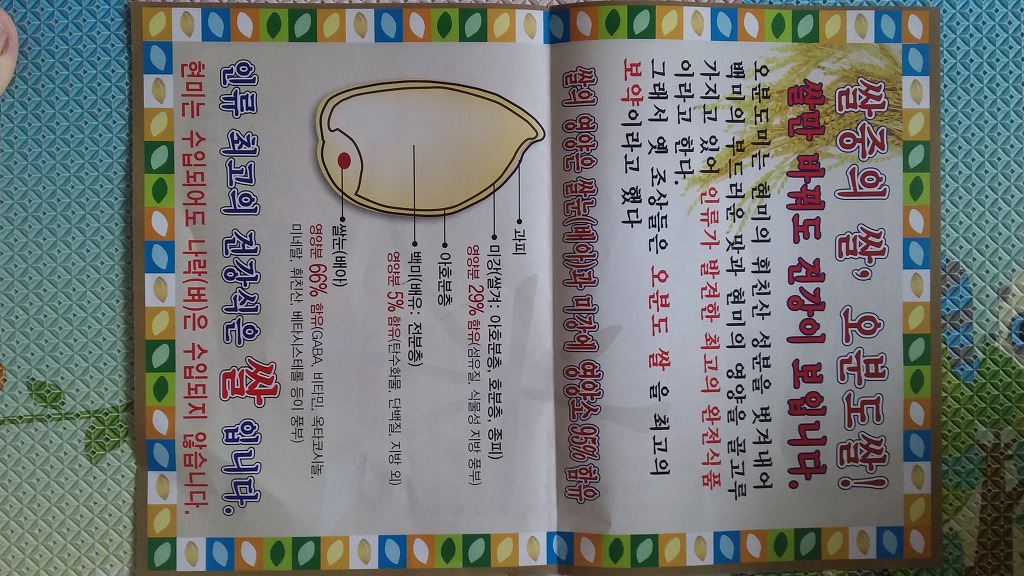 쌀중의 쌀, 오분도쌀!
쌀만 바꿔도 건강이 보입니다.
오분도미는 현미의 휘친산 성분을 벗겨내어
백미의 부드러운 맛과 현미의 영양을 골고루
가지고 있어 인류가 발견한 최고의 완전식품
이라고 한다.
그래서 옛 조상들은 오분도 쌀 을 최고의
보약이라고 했다
쌀의 영양은 쌀눈(배아)과 미강에 영양소 95% 함유
과피
미강(쌀겨: 아호분층 호분층 종피)
영양분 29% 함유(섬유질 식물성 지방 풍부)
아호분층
백미(배유: 전분층)
영양분 5% 함유(탄수화물, 단백질, 지방 외)
쌀눈(배아)
영양분 66% 함유(GABA, 비타민, 옥타코사놀,
미네랄, 휘친산, 베타시스테롤 등이 풍부)
인류 최고의 건강식은 쌀 입니다.
현미는 수입되어도 나락(벼)은 수입되지 않습니다.